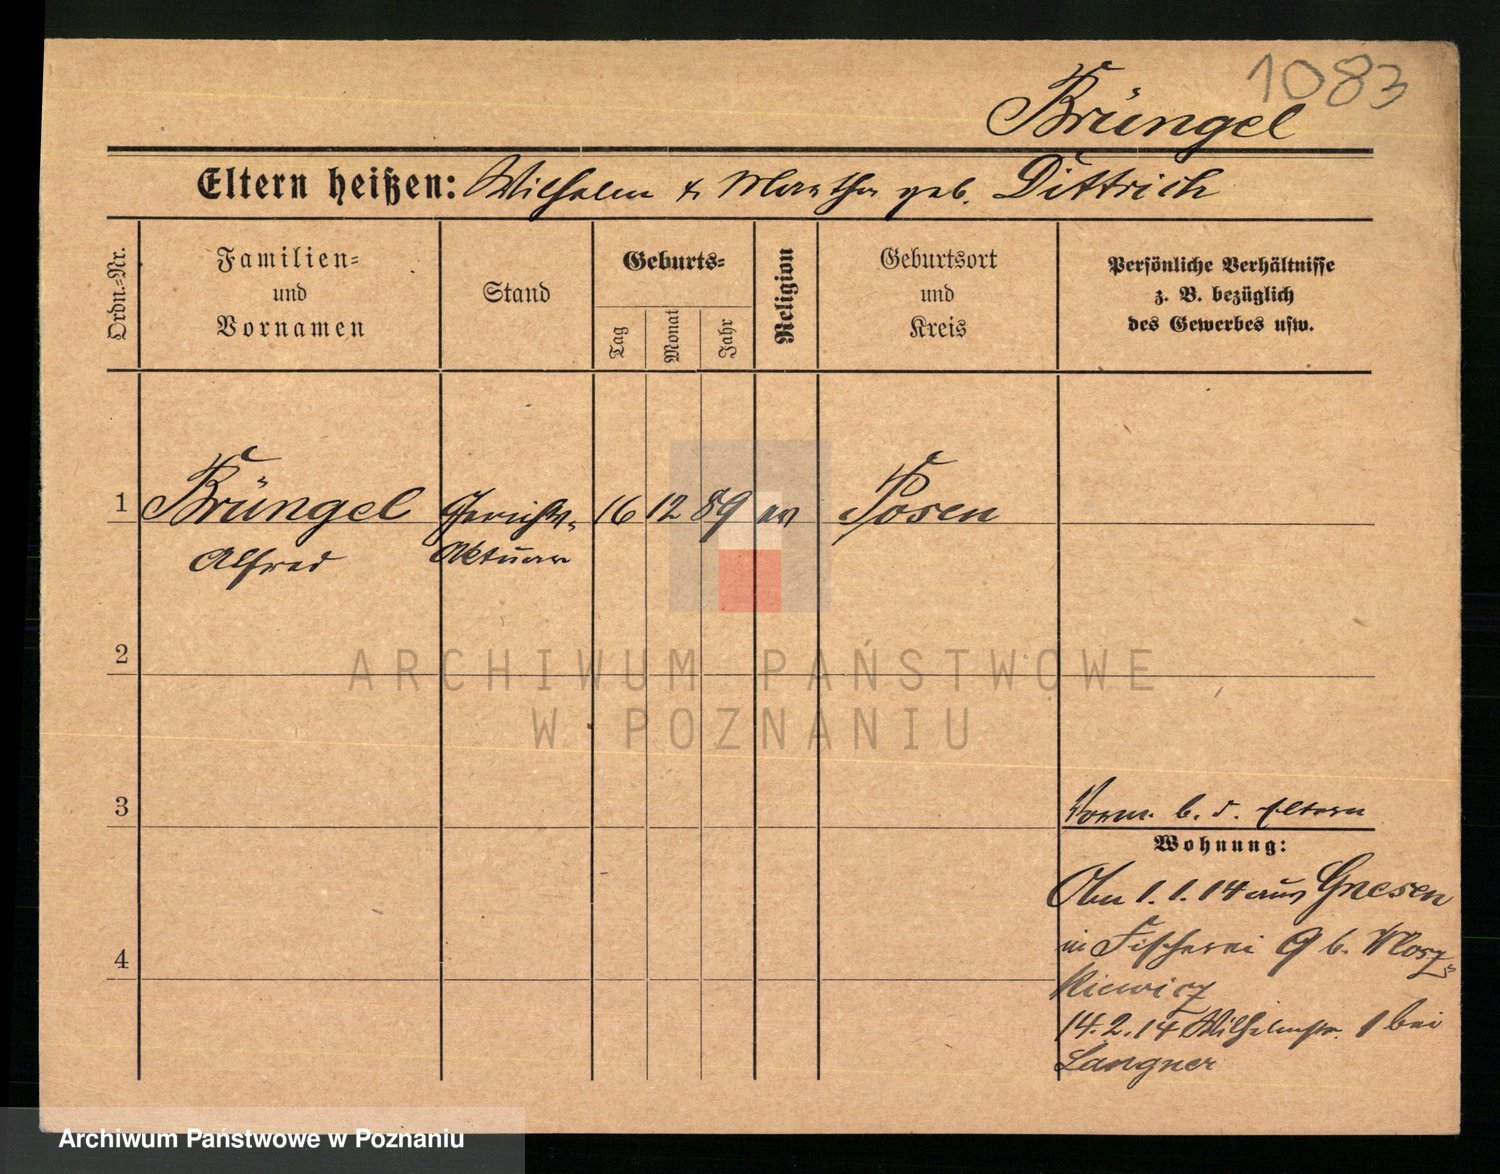 1083
Brüngel
Eltern heißen: Wilhelm & Martha geb. Dittrich
Ordn.-Nr.
Familien-
und
Vornamen
Stand
Geburts-
Tag
Monat
Jahr
Religion
Geburtsort
und
Kreis
Persönliche Verhältnisse
z. B. bezüglich
des Gewerbes usw.
1 Brüngel Gerichts- 16 12 89 ev Posen
Alfred Aktuar
2
3
Vorm. b. d. Eltern
Wohnung:
1.1.14 aus Gnesen
in Fischerei 9 b. Wlosz-
4
kiewicz
14.2.14 Wilhelmstr. 1 bei
Langner
ARCHIWUM PAŃSTWOWE
W POZNANIU
Archiwum Państwowe w Poznaniu